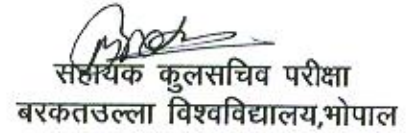 सहायक कुलसचिव परीक्षा
बरकतउल्ला विश्वविद्यालय,भोपाल